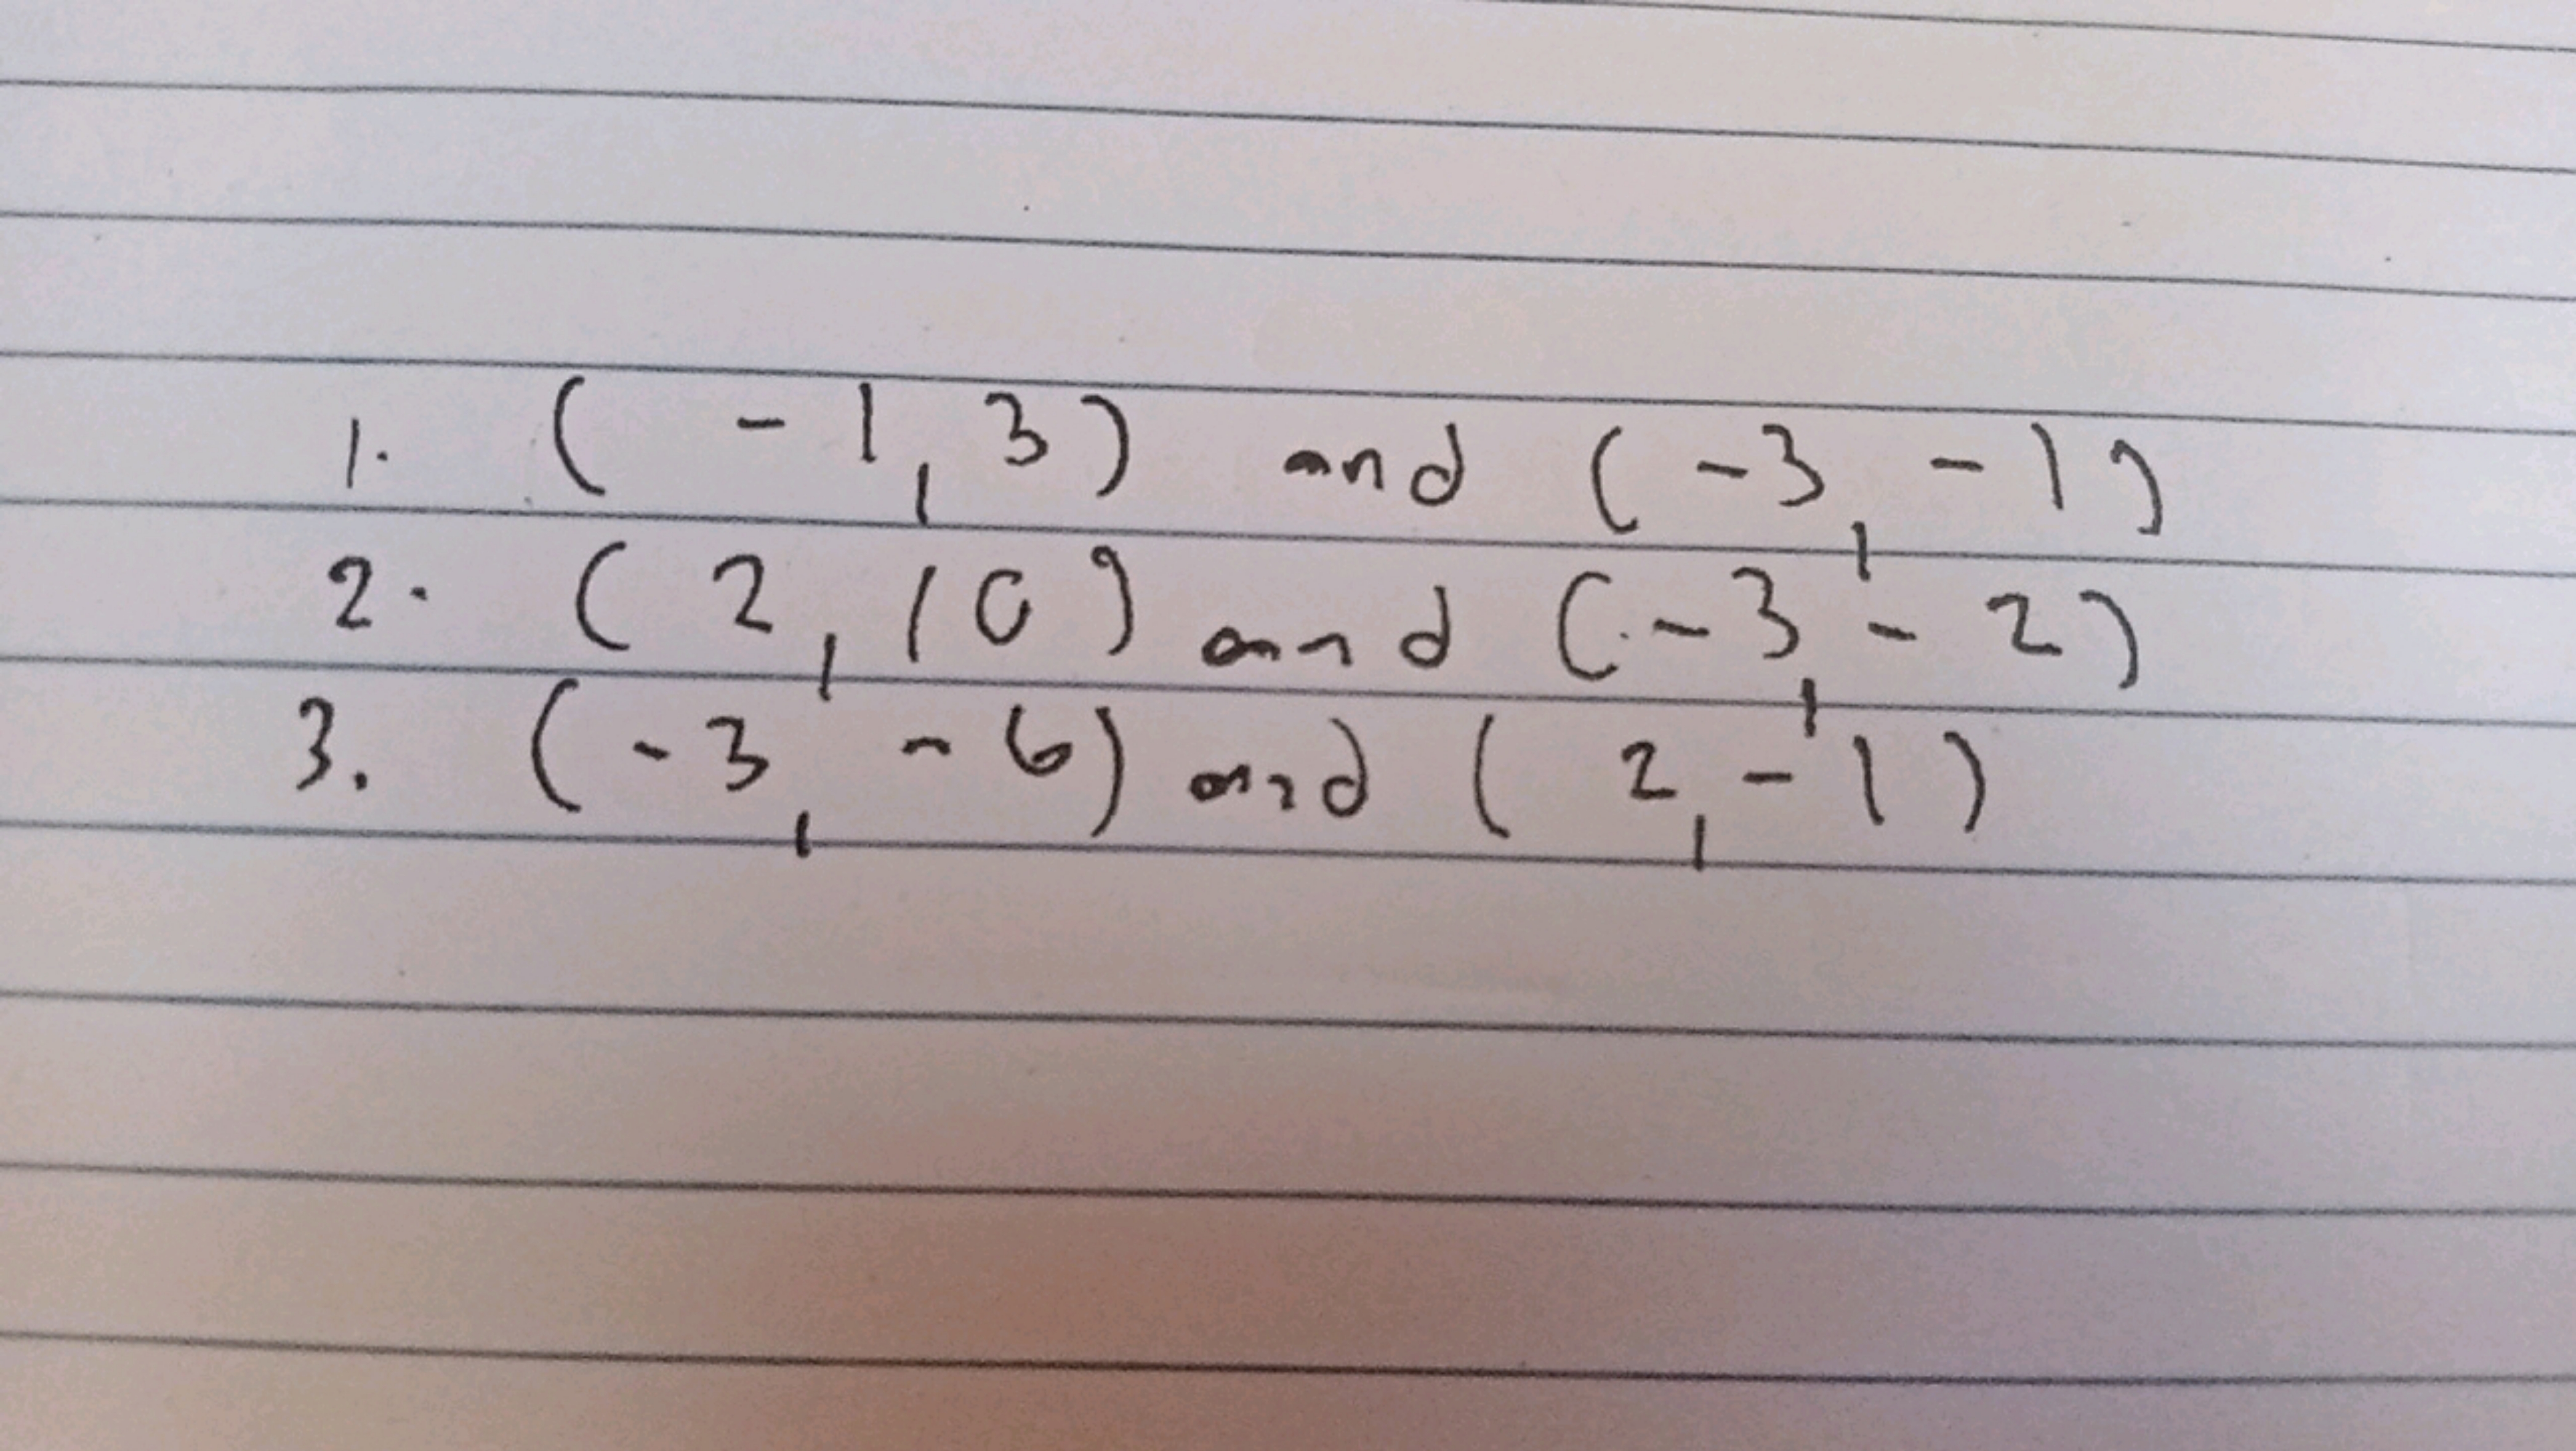 1. (-1, 3) and (-3, -1)
2. (2, 10) and (-3, -2)
3. (-3, -6) and (2, -1)